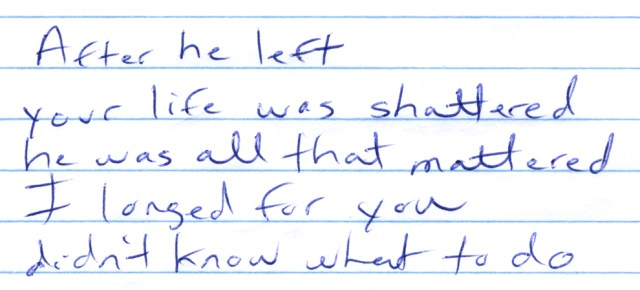 After he left
your life was shattered
he was all that mattered
I longed for you
didn't know what to do